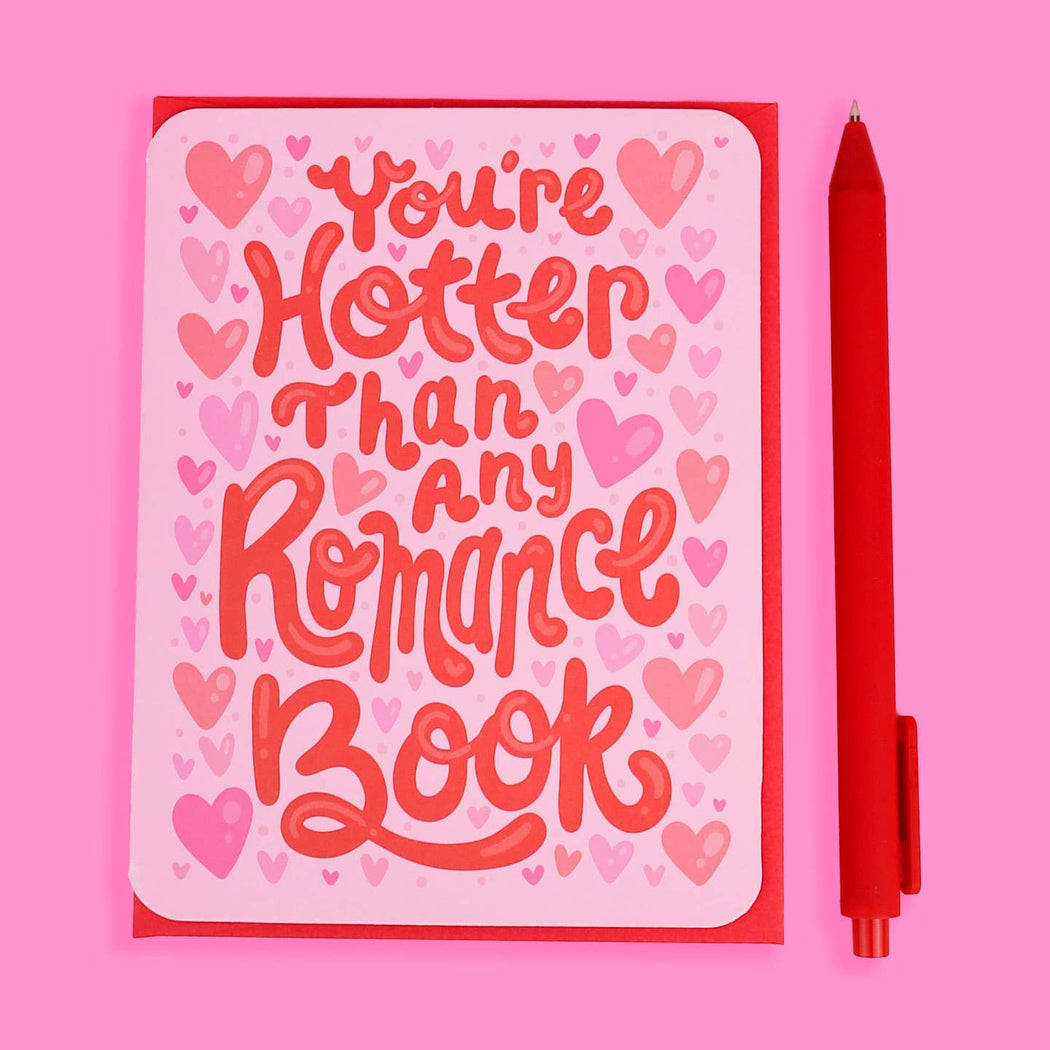 You're
Hotter
Than
Any
Romance
Book